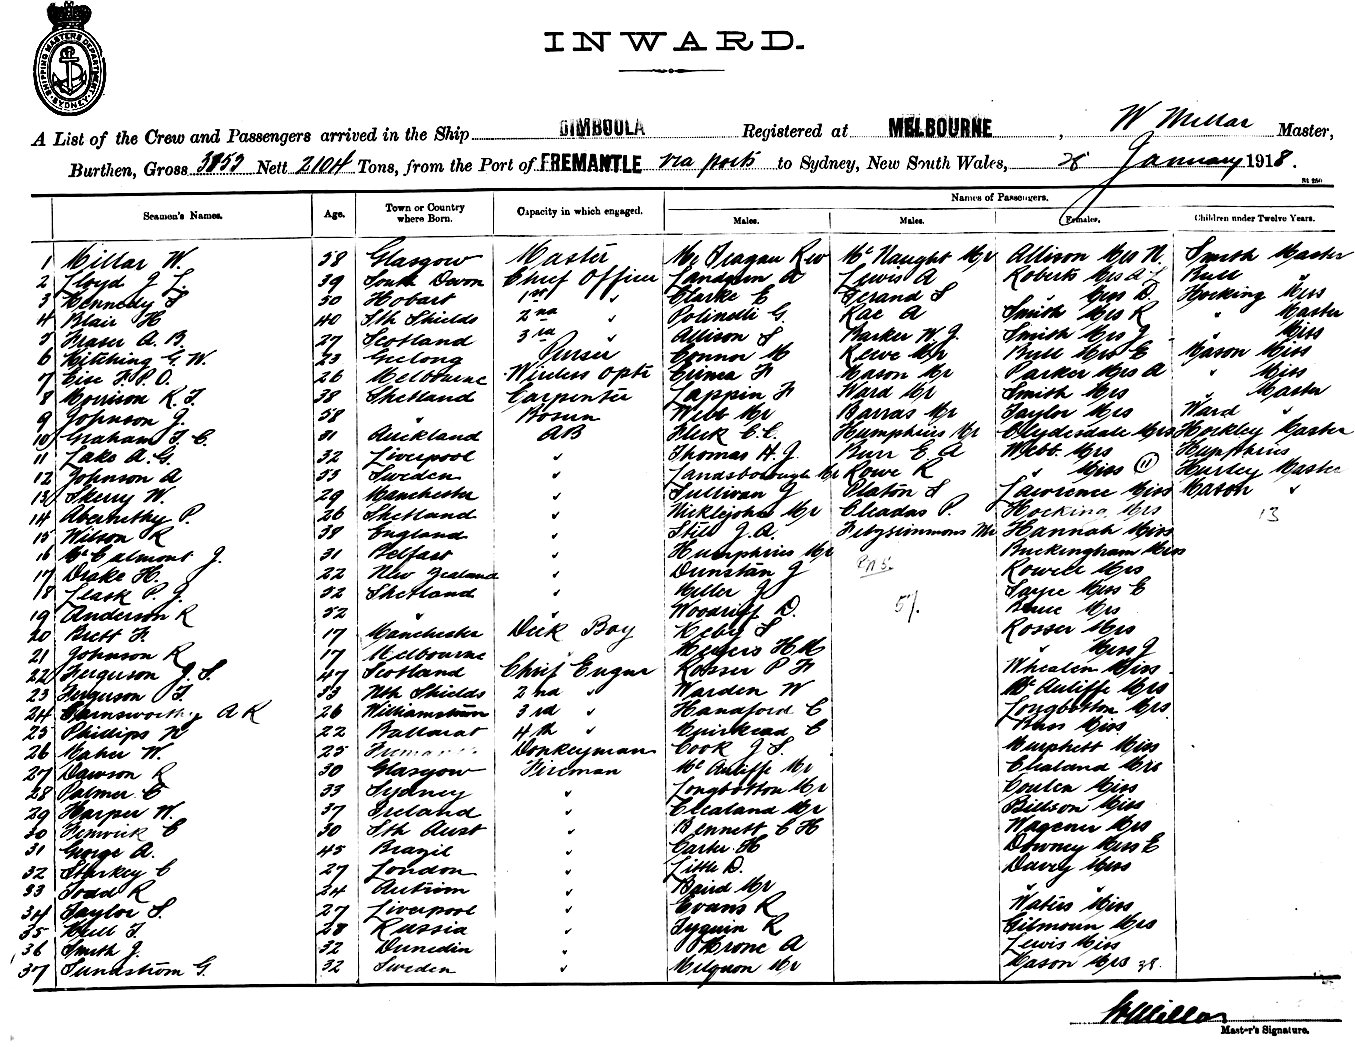 SHIPPING MASTERS DEPARTMENT SYDNEY
INWARD.
A List of the Crew and Passengers arrived in the Ship DIMBOULA Registered at MELBOURNE, W Millar Master,
Burthen, Gross 3853 Nett 2104 Tons, from the Port of FREMANTLE via ports to Sydney, New South Wales, 28 January 1918.
Names of Passengers.
Seamen's Names. Age. Town or Country where Born. Capacity in which engaged. Males. Males. Females. Children under Twelve Years.
1 Millar W. 58 Glasgow Master Rev Mc Naught Mr Allison Mrs N Smith Master
2 Lloyd J L. 39 South Devon Chief Office Landgren A Lewis A Roberts Mrs Bull "
3 Kennedy 50 Hobart 1st " Clarke E S " Miss D Hocking Miss
4 Blair H 40 Sth Shields 2nd " Polinelli G. Rae A Smith Mrs R " Master
5 Fraser A. B. 27 Scotland 3rd " Allison S Barker W. J. Smith Mrs J " Miss
6 Kitching G. W. 23 Geelong Purser Connor M Mr Bull Mrs E Mason Miss
7 F. P. O. 26 Melbourne Wireless Optr F Mason Mr Parker Mrs A " Miss
8 Morrison R. J. 38 Shetland Carpenter Lappin F Ward Mr Smith Mrs " Master
9 Johnson J. 58 " Bosun Webb Mr Barras Mr Taylor Mrs Ward "
10 Graham J. C. 31 Auckland AB Fleck C. C. Humphries Mr Clydesdale Mrs Hockley Master
11 Lake A. G. 32 Liverpool " Thomas H. J. Burr E A Webb Mrs Humphries
12 Johnson A 53 Sweden " Landsborough Mr Rowe R " Miss (11) Hurley Master
13 Skerry W. 29 Manchester " Sullivan J Slaton S Lawrence Miss Mason "
14 Abernethy P. 26 Shetland " Micklejohn Mr Cleadas P. Hocking Mrs 13
15 Wilson R 38 England " Still J. A. Fitzsimmons Mr Hannah Miss
16 Mc Calmont J. 31 Belfast " Humphries Mr Buckingham Miss
17 Drake H. 22 New Zealand " Dunstan J Rowell Mrs
18 Leask P. J. 52 Shetland " Miller J Miss E
19 Anderson R 52 " " Woodriff D. Mrs
20 F. 17 Manchester Deck Boy S Rosser Mrs
21 Johnson R 17 Melbourne " Meyers H M " Miss J
22 Ferguson J. S. 47 Scotland Chief Engnr Rosser P F Whealen Miss
23 Ferguson J. 33 Nth Shields 2nd " Warden W Mc Auliffe Mrs
24 Farnsworthy A K 26 Williamstown 3rd " Handford C Longbottom Mrs
25 Phillips W 22 Ballarat 4th " Muirhead C Miss
26 Maher W. 25 Donkeyman Cook J S Murphett Miss
27 Dawson R 30 Glasgow Fireman Mc Auliffe Mr Clealand Mrs
28 Palmer C 33 Sydney " Longbottom Mr Coulen Miss
29 Harper W. 37 Ireland " Clealand Mr Billson Miss
30 Fenwick C 30 Sth Aust " Bennett C H Wagener Mrs
31 George A. 45 Brazil " Carter H Downey Miss E
32 Starkey C 27 London " Little D. Davey Miss
33 Todd R 24 Antrim " Baird Mr " "
34 Taylor S. 27 Liverpool " Evans R Waters Miss
35 Hull J 28 Russia " Tyquin R Gilmour Mrs
36 Smith J. 32 Dunedin " Krone A Lewis Miss
37 Sundstrom G. 32 Sweden " Milquon Mr Mason Mrs 38.
51.
W Millar
Master's Signature.